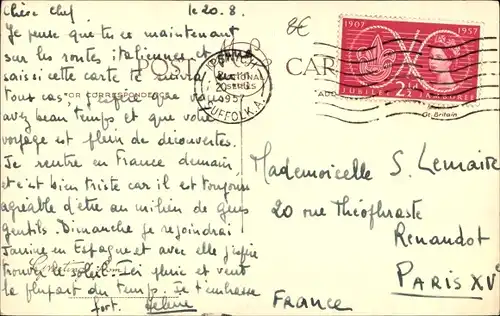 Chère Chef
le 20.8.
Je pense que tu es maintenant
sur les routes italiennes et
aussi cette carte te suivra
tout cas, j'espère que vous
avez beau temps et que votre
voyage est plein de découvertes.
Je rentre en France demain,
et c'est bien triste car il est toujours
agréable d'être au milieu de gens
gentils. Dimanche je rejoindrai
Janine en Espagne et avec elle j'espère
trouver le soleil. Ici pluie et vent
la plupart du temps. Je t'embrasse
fort. Hélène
POST CARD
FOR CORRESPONDENCE
8€
IPSWICH
20
1957
SUFFOLK
1907 1957
2½
JUBILEE JAMBOREE
Gt. Britain
Mademoiselle S. Lemaire
20 rue Théophraste
Renaudot
PARIS XVe
FRANCE